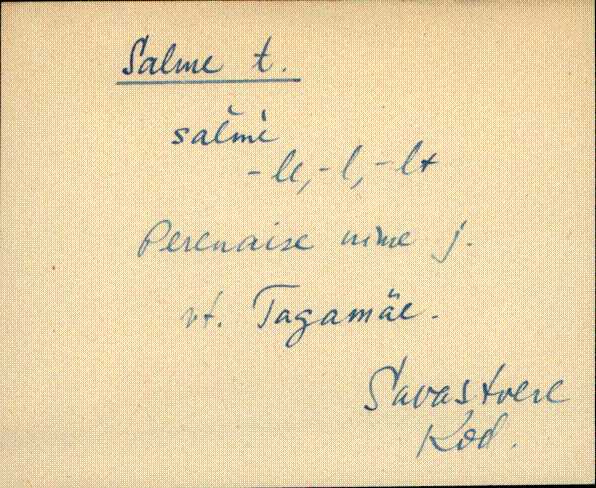 Salme t.
salmè
-le, -l, -lt
Perenaise nime j.
vt. Tagamäe.
Savastvere
Kod.